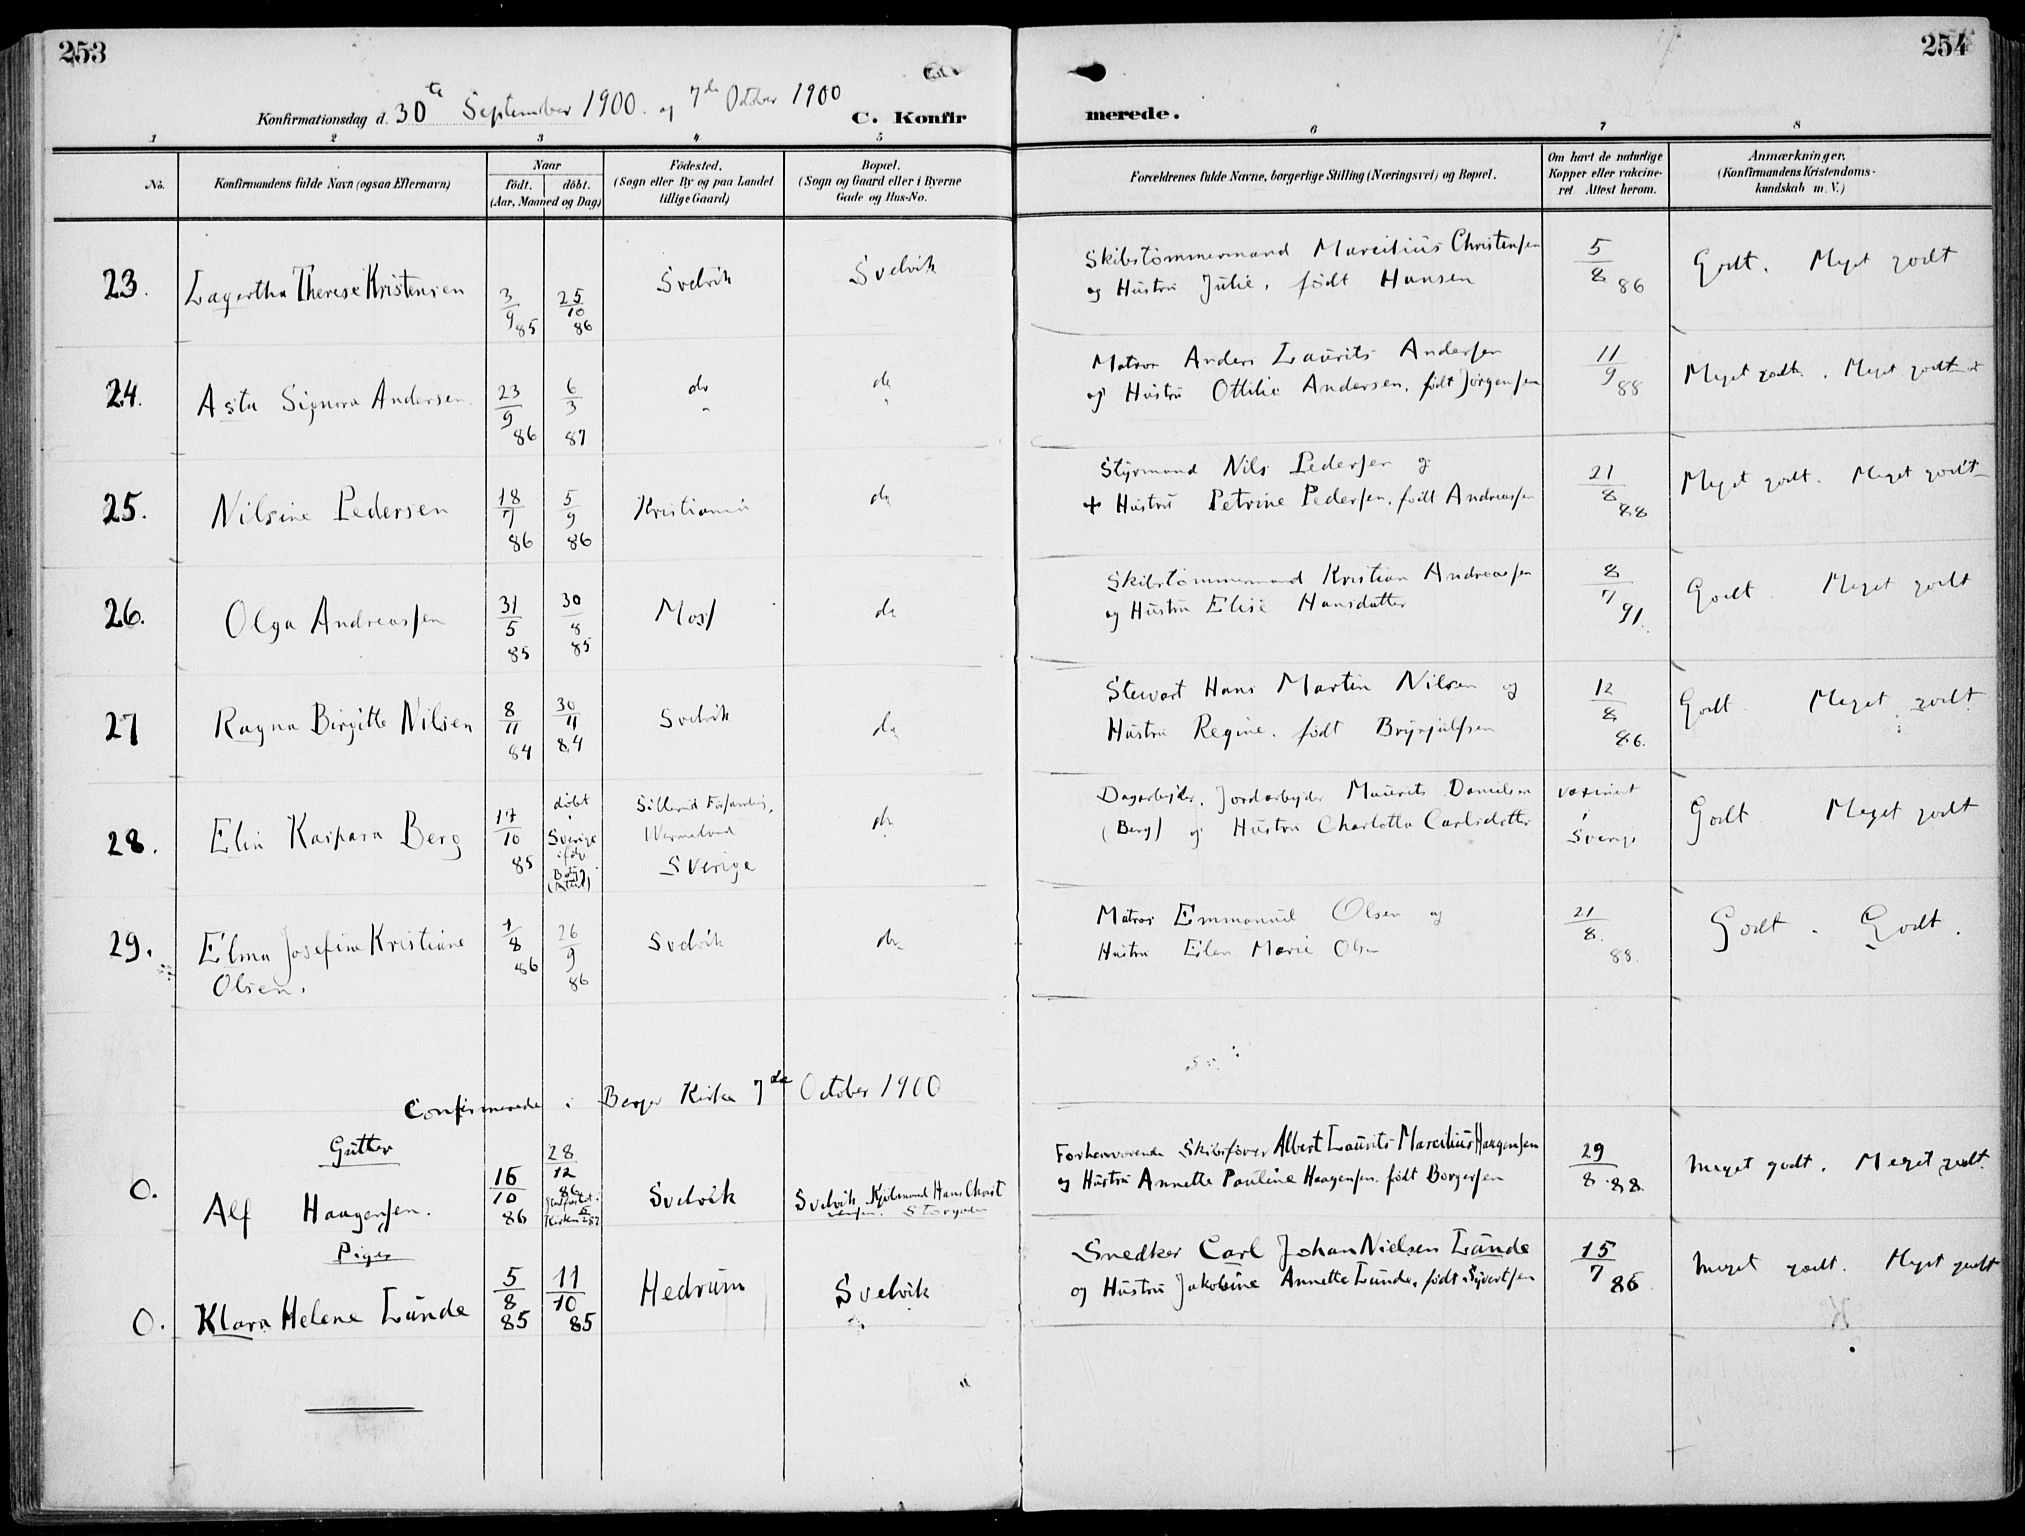 253
254
Konfirmationsdag d. 30te September 1900. og 7de October 1900
C. Konfirmerede.
1 2 3 4 5 6 7 8
No.
Konfirmandens fulde Navn (ogsaa Efternavn)
Naar
født. døbt.
(Aar, Maaned og Dag)
Fødested.
(Sogn eller By og paa Landet
tillige Gaard)
Bopæl.
(Sogn og Gaard eller i Byerne
Gade og Hus-No.
Forældrenes fulde Navne, borgerlige Stilling (Næringsvei) og Bopæl.
Om havt de naturlige
Kopper eller vakcine-
ret Attest herom.
Anmærkninger.
(Konfirmandens Kristendoms-
kundskab m. V.)
23. Lagertha Therese Kristensen 3/9 85 25/10 86 Svelvik Svelvik
Skibstømmermand Marcilius Christensen
og Hustru Julie, født Hansen
5/8 86 Godt. Meget godt
24. Asta Signora Andersen 23/9 86 6/3 87 do do
Matros Anders Laurits Andersen
og Hustru Ottilie Andersen, født Jørgensen
11/9 88 Meget godt. Meget godt
25. Nilsine Pedersen 18/7 86 5/9 86 Kristiania do
Styrmand Nils Pedersen og
+ Hustru Petrine Pedersen, født Andreassen
21/8 88 Meget godt. Meget godt
26. Olga Andreassen 31/5 85 30/8 85 Moss do
Skibstømmermand Kristian Andreassen
og Hustru Elise Hansdatter
8/7 91. Godt Meget godt
27 Ragna Birgitte Nilsen 8/11 84 30/11 84 Svelvik do
Stewart Hans Martin Nilsen og
Hustru Regine, født Brynjulfsen
12/8 86. Godt Meget godt
28. Elin Kaspara Berg 17/10 85 døbt i Sverige ifølge (Attest) Sillerud Forsamling, Wermeland Sverige do
Dagarbejder, Jordarbejder Maurits Danielsen
(Berg) og Hustru Charlotta Carlsdotter
vaxineret i Sverige Godt Meget godt
29. Elma Josefine Kristiane 1/8 86 26/9 86 Svelvik do
Olsen.
Matros Emmanuel Olsen og
Hustru Elen Marie Olsen
21/8 88. Godt. Godt.
Confirmerede i Berger Kirke 7de October 1900
Gutter
0. Alf Haagensen. 16/10 86 28/12 86 Svelvik Svelvik, Hans Christ Storgaden
Forhenværende Skibsfører Albert Laurits Marcilius Haagensen
og Hustru Annette Pauline Haagensen født Borgersen
29/8 88. Meget godt. Meget godt.
Piger
0. Klara Helene Lunde 5/8 85 11/10 85 Hedrum Svelvik
Snedker Carl Johan Nielsen Lunde
og Hustru Jakobine Annette Lunde, født Syvertsen
15/7 86 Meget godt. Meget godt